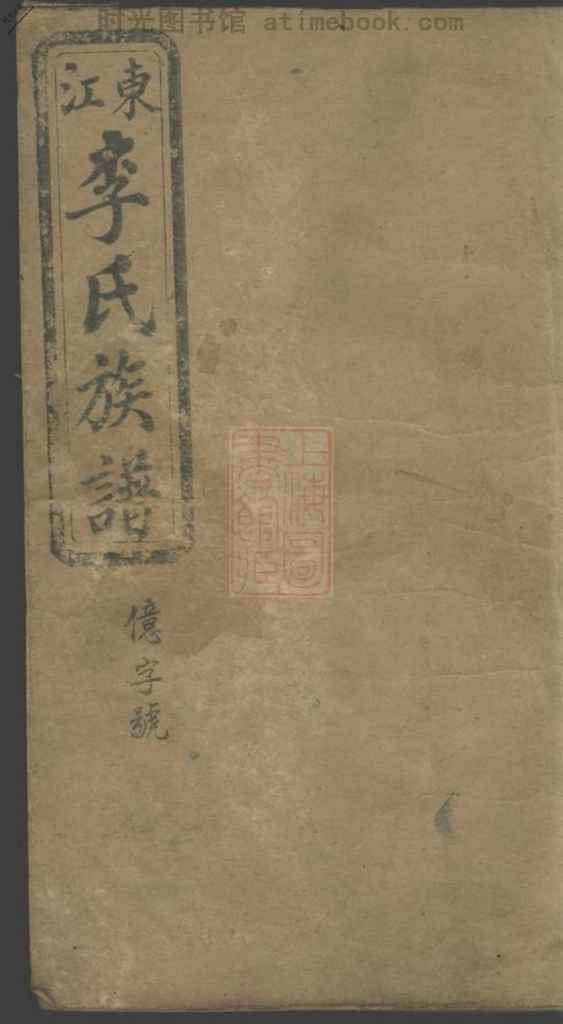 时光图书馆 atimebook.com
東江
李氏族譜
億字號
时光图书馆 atimebook.com